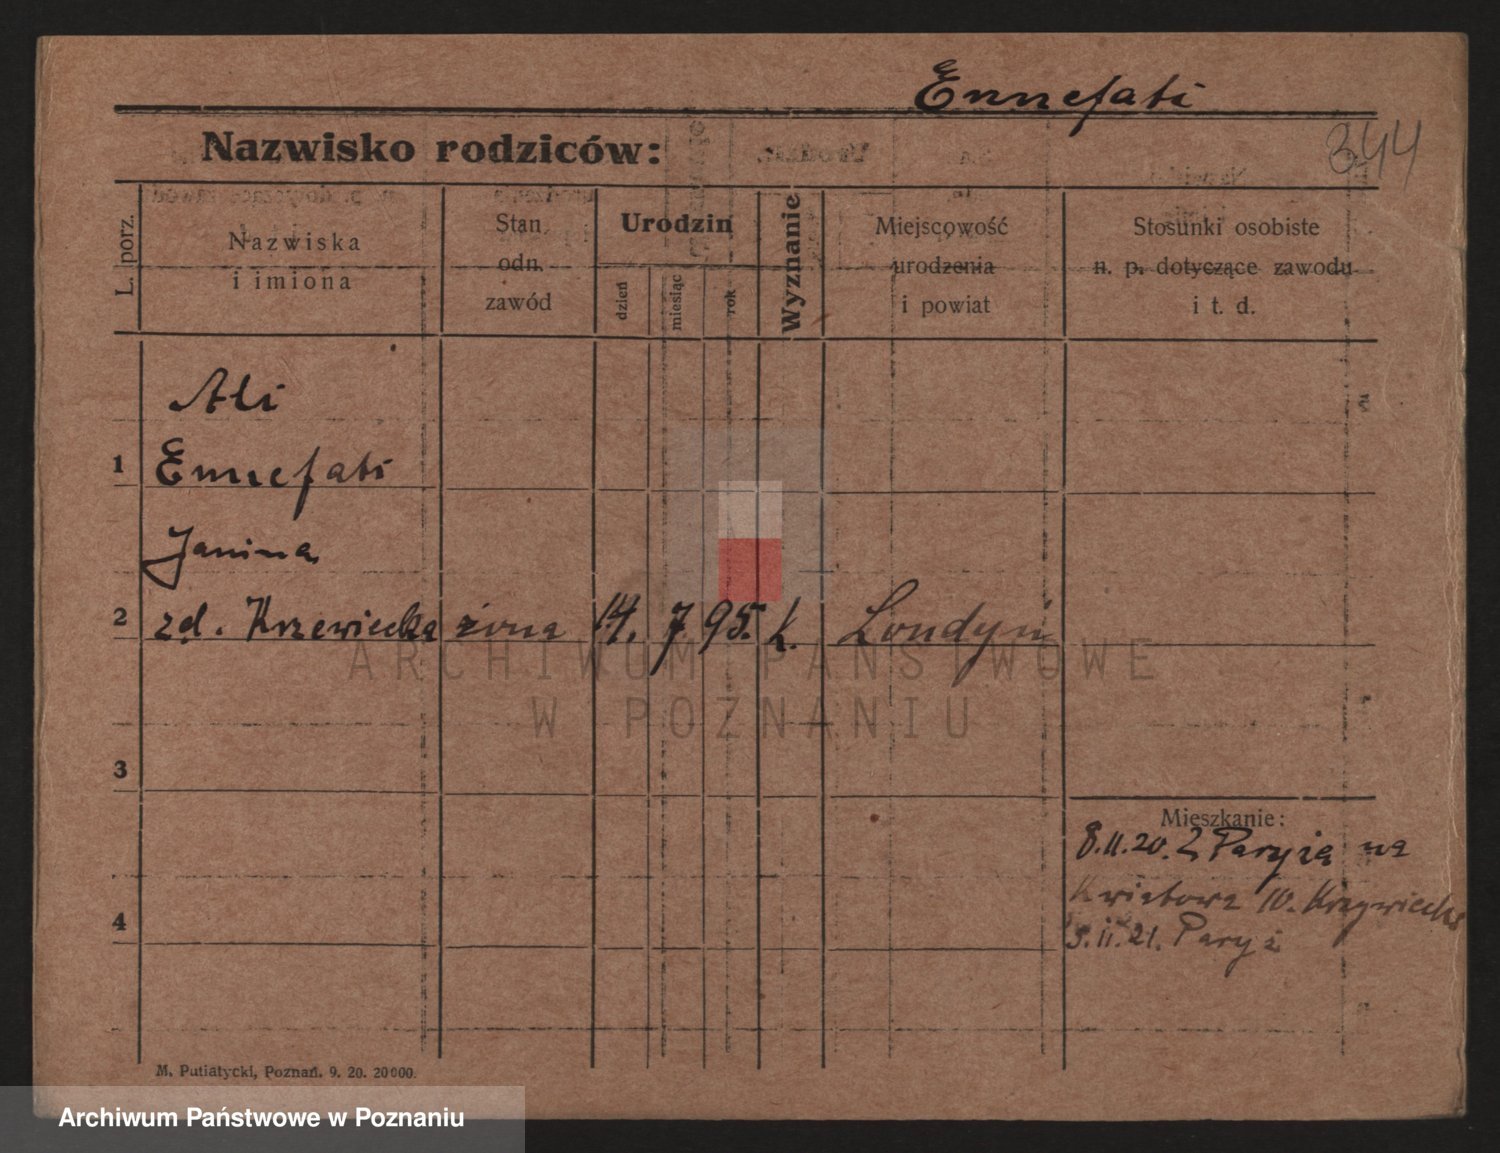 Ennefati
Nazwisko rodziców:
344
L. porz.
Nazwiska
i imiona
Stan
odn.
zawód
Urodzin
dzień
miesiąc
rok
Wyznanie
Miejscowość
urodzenia
i powiat
Stosunki osobiste
n. p. dotyczące zawodu
i t. d.
Ali
1 Ennefati
Janina
2 zd. Krzewiecka żona 14. 7 95. k. Londyn
3
Mieszkanie:
8.11.20. z Paryża na
Kwiatowa 10. Krzywiecka
4
5.11.21. Paryż
M. Putiatycki, Poznań. 9. 20. 20000.
ARCHIWUM PAŃSTWOWE
W POZNANIU
Archiwum Państwowe w Poznaniu